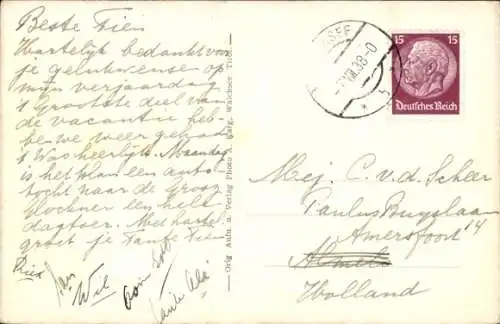 Beste Fien
Hartelijk bedankt voor
je gelukwensen op
mijn verjaardag
't Grootste deel van
de vacantie heb-
be we weer gehad
't Was heerlijk. Maandag
is het plan een auto-
tocht naar de Gross
glockner een hele
dagtoer. Met hartel.
groet je Tante Fien
Wil
Tante
Orig. Aufn. u. Verlag Photo
Walchsee Tirol
SEE
VII.38-0
15 15
Deutsches Reich
Mej. C. v. d. Scheer
Paulus Buyslaan 14
Amersfoort
Almelo
Holland